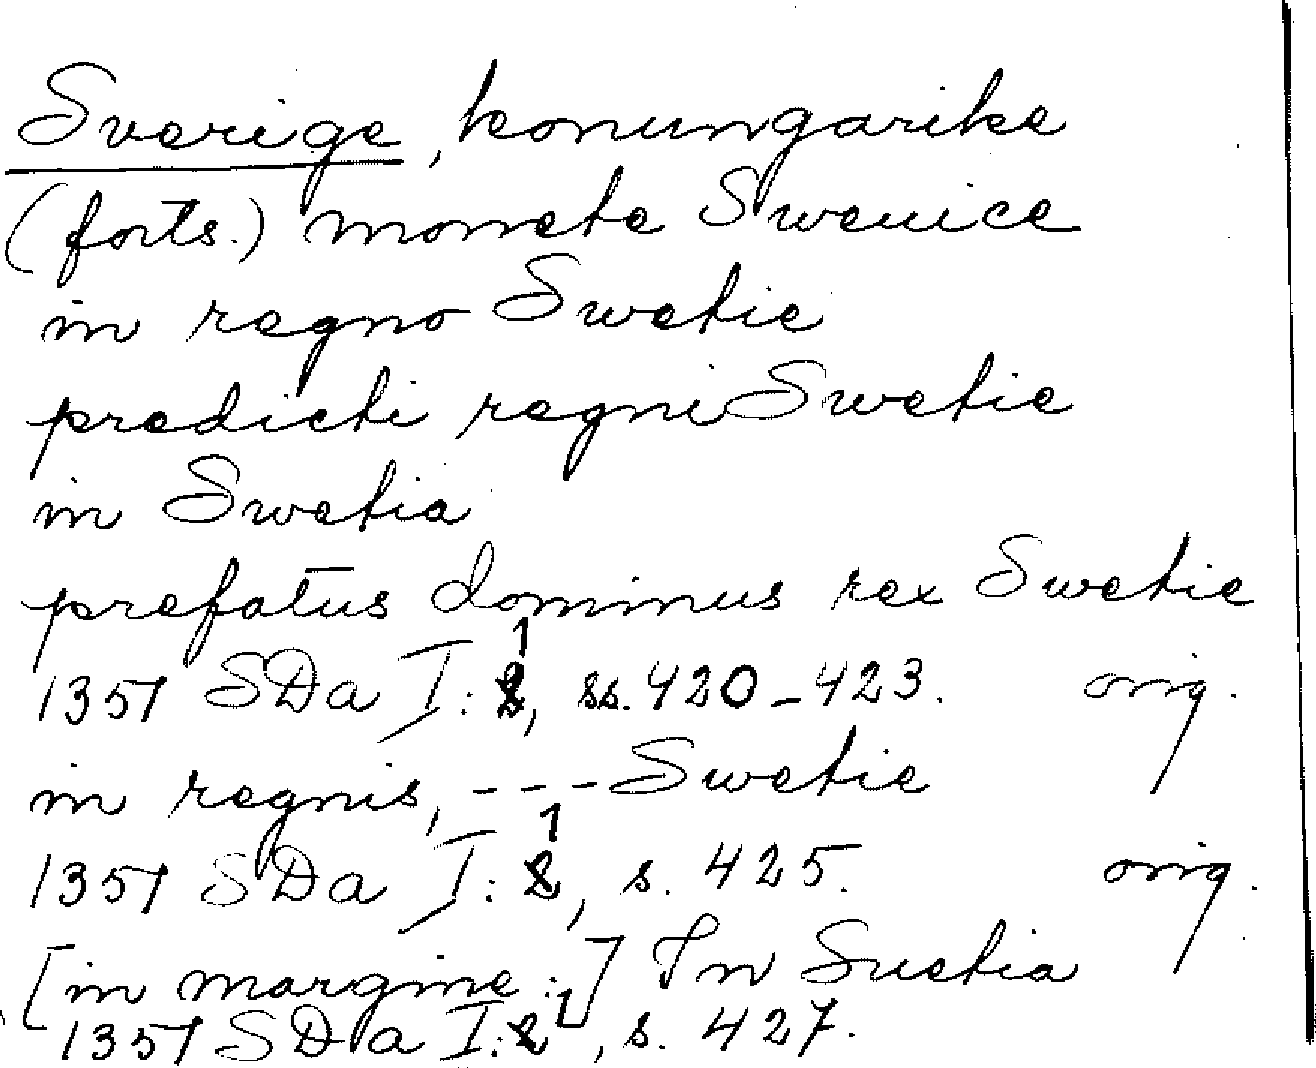 Sverige, konungarike
(forts.) monete Swenice
in regno Swetie
predicti regni Swetie
in Swetia
prefatus dominus rex Swetie
1351 SDa I:1, ss. 420-423. orig.
in regnis, --- Swetie
1351 SDa I:1, s. 425. orig.
[in margine:] In Suetia
1351 SDa I:1, s. 427.